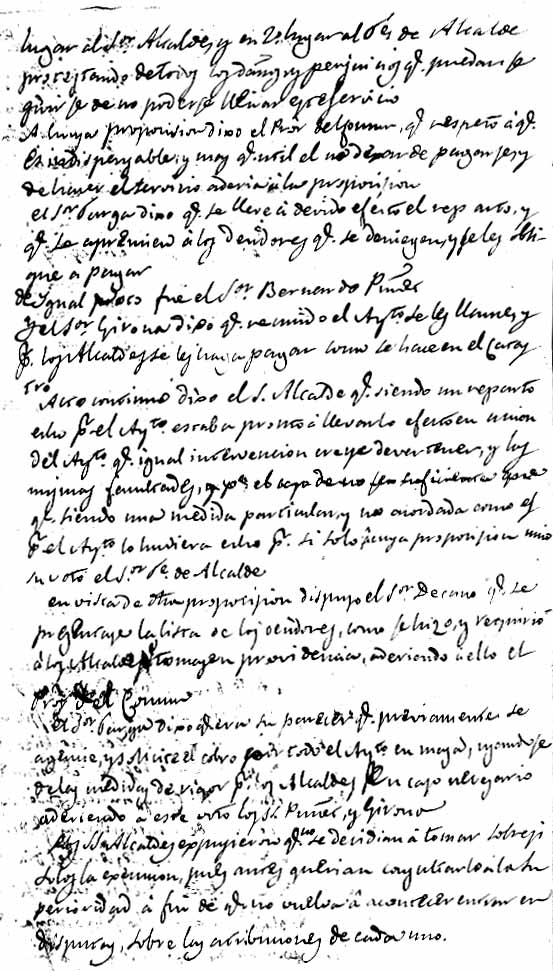 lugar al Sor. Alcaldes y en 2o. lugar al Te. de Alcalde
protestando de todos los daños y perjuicios q. puedan se
guirse de no poderse llevar este servicio
A cuya proposicion dixo el Pror. del comun, q. respeto á q.
Es indispensable, y muy q. util el no dexar de pagarse, y
de hacer el servicio aderia á la proposicion
el Sor. Parga dixo q. se lleve á devido efecto el reparto, y
q. se apremien á los deudores q. se denieguen, y se les obli-
gue a pagar
de igual fue el Sor. Bernardo
y el Sor. Girona dixo q. reunido el Ayto. se les llame, y
p. los Alcaldes se les haga pagar como se hace en el Catas
tro
Acto continuo dixo el S. Alcalde q. siendo un reparto
echo p. el Ayto. estaba pronto á llevarlo efecto en union
del Ayto. q. igual intervencion creye dever tener, y las
mismas facultades,
q. siendo una medida particular, y no acordada como es
p. el Ayto. lo hubiera echo p. si solo á cuya proposicion unio
su voto el Sor. Te. de Alcalde
en vista de dha proposicion dispuso el Sor. Decano q. se
presentase la lista de los deudores, como se hizo, y requirió
á los Alcaldes tomasen providencia, aderiendo á ello el
Pror. del Comun
El Sor. Parga dixo q. era su parecer q. previamente se
agencie, y solicite el cobro por todo el Ayto. en masa, usandose
de las medidas de rigor p. los Alcaldes en caso necesario
aderiendo á este voto los SS. y Girona
Los SS. Alcaldes expusieron q. no se decidian á tomar sobre si
solos la execucion, pues antes querian consultarlo á la Su
perioridad á fin de q. no vuelva á acontecer entrar en
disputas, sobre las atribuciones de cada uno.